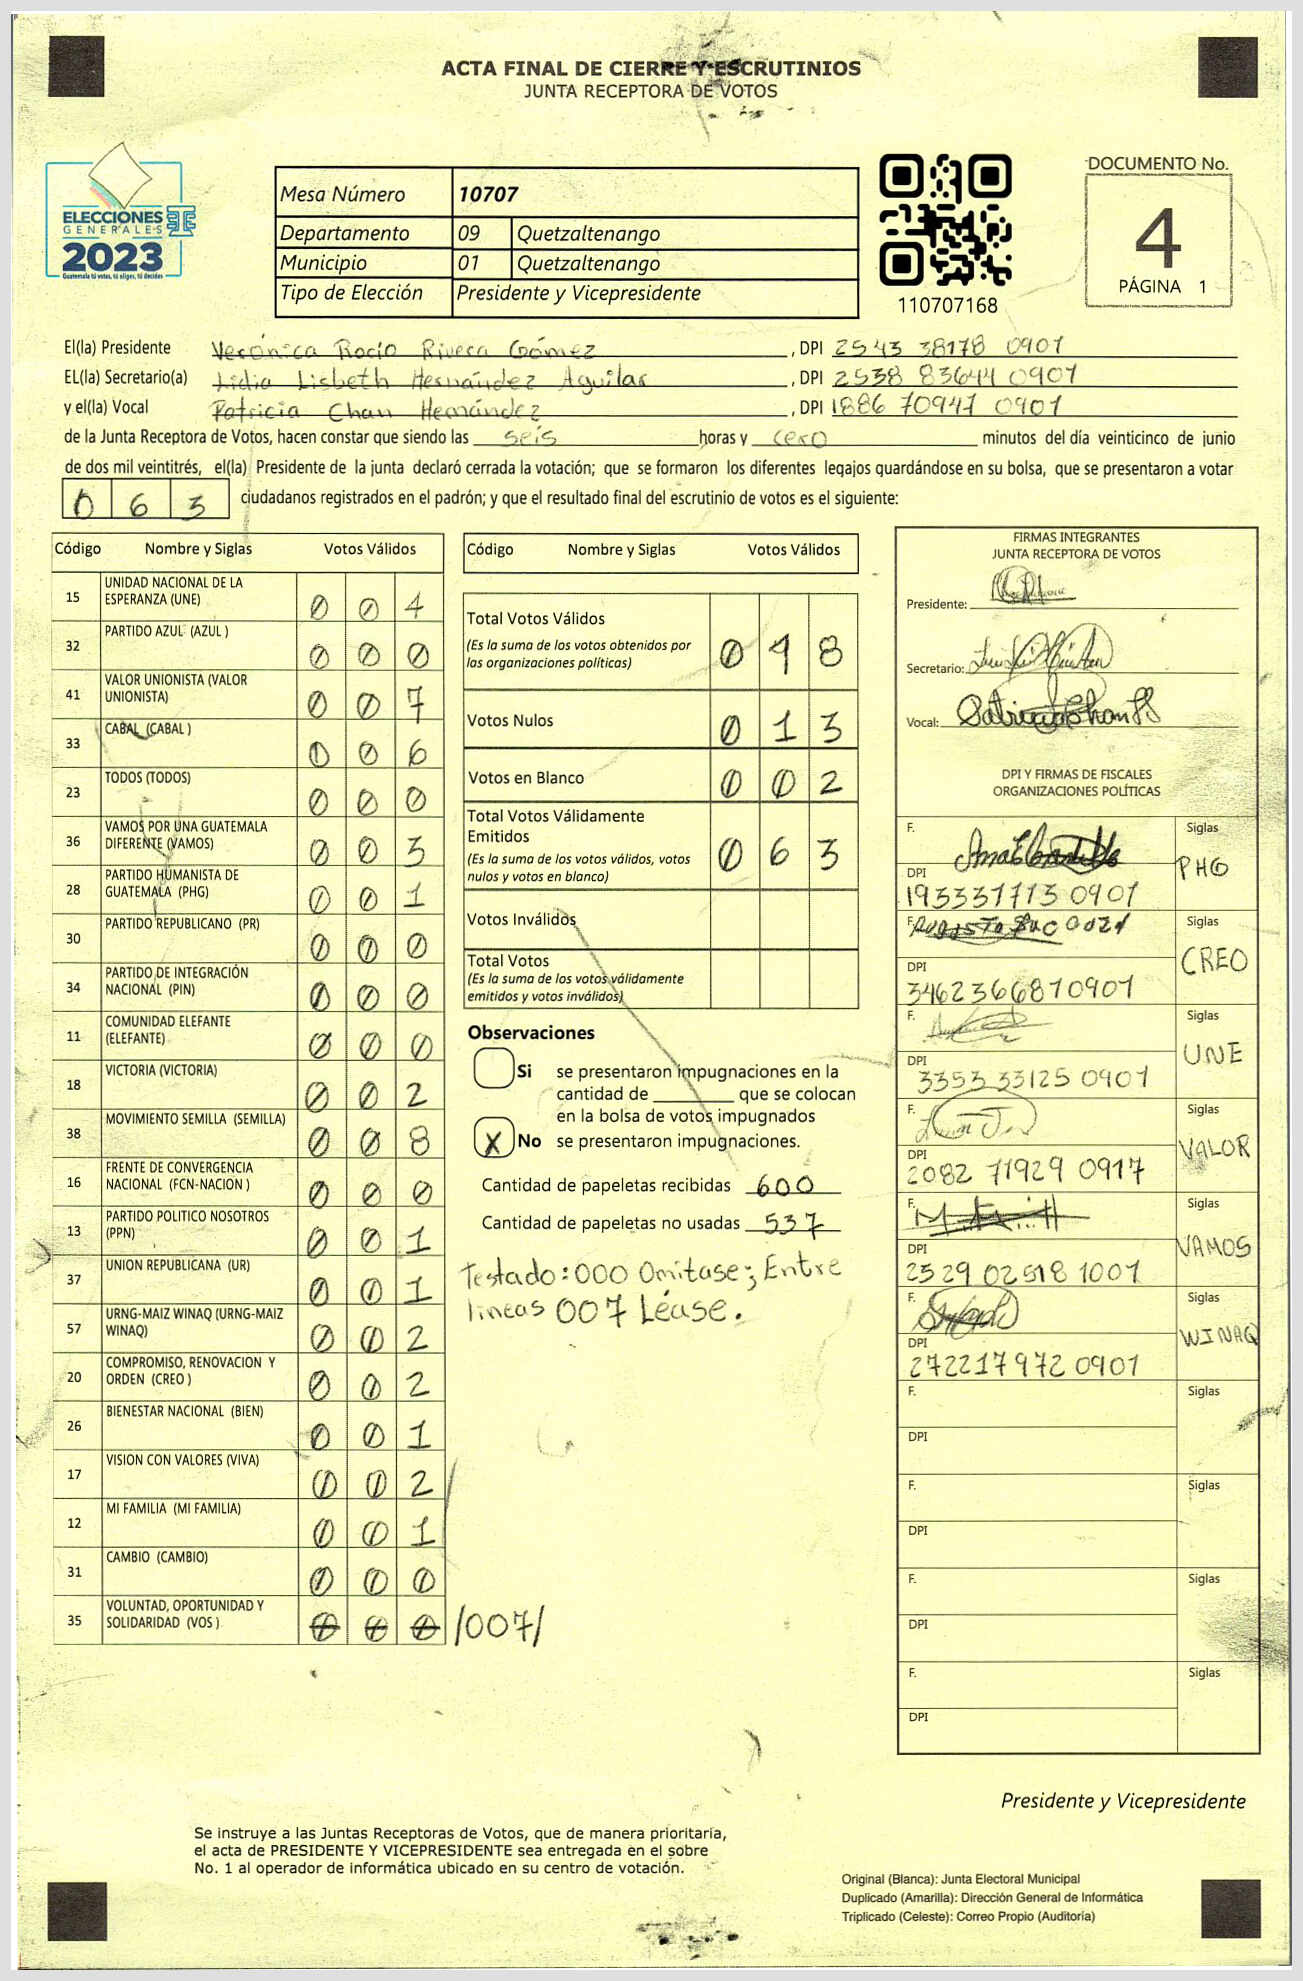 ACTA FINAL DE CIERRE Y ESCRUTINIOS
JUNTA RECEPTORA DE VOTOS
ELECCIONES
GENERALES
2023
Guatemala tú votas, tú eliges, tú decides
Mesa Número 10707
Departamento 09 Quetzaltenango
Municipio 01 Quetzaltenango
Tipo de Elección Presidente y Vicepresidente
110707168
DOCUMENTO No.
4
PÁGINA 1
El(la) Presidente Verónica Rocío Rivera Gómez , DPI 2543 38178 0901
EL(la) Secretario(a) Lidia Lisbeth Hernández Aguilar , DPI 2538 83644 0901
y el(la) Vocal Patricia Chan Hernández , DPI 1886 70947 0901
de la Junta Receptora de Votos, hacen constar que siendo las seis horas y cero minutos del día veinticinco de junio
de dos mil veintitrés, el(la) Presidente de la junta declaró cerrada la votación; que se formaron los diferentes legajos guardándose en su bolsa, que se presentaron a votar
063 ciudadanos registrados en el padrón; y que el resultado final del escrutinio de votos es el siguiente:
Código Nombre y Siglas Votos Válidos
15 UNIDAD NACIONAL DE LA
ESPERANZA (UNE) 0 0 4
32 PARTIDO AZUL (AZUL ) 0 0 0
41 VALOR UNIONISTA (VALOR
UNIONISTA) 0 0 7
33 CABAL (CABAL ) 0 0 6
23 TODOS (TODOS) 0 0 0
36 VAMOS POR UNA GUATEMALA
DIFERENTE (VAMOS) 0 0 3
28 PARTIDO HUMANISTA DE
GUATEMALA (PHG) 0 0 1
30 PARTIDO REPUBLICANO (PR) 0 0 0
34 PARTIDO DE INTEGRACIÓN
NACIONAL (PIN) 0 0 0
11 COMUNIDAD ELEFANTE
(ELEFANTE) 0 0 0
18 VICTORIA (VICTORIA) 0 0 2
38 MOVIMIENTO SEMILLA (SEMILLA) 0 0 8
16 FRENTE DE CONVERGENCIA
NACIONAL (FCN-NACION ) 0 0 0
13 PARTIDO POLITICO NOSOTROS
(PPN) 0 0 1
37 UNION REPUBLICANA (UR) 0 0 1
57 URNG-MAIZ WINAQ (URNG-MAIZ
WINAQ) 0 0 2
20 COMPROMISO, RENOVACION Y
ORDEN (CREO ) 0 0 2
26 BIENESTAR NACIONAL (BIEN) 0 0 1
17 VISION CON VALORES (VIVA) 0 0 2
12 MI FAMILIA (MI FAMILIA) 0 0 1
31 CAMBIO (CAMBIO) 0 0 0
35 VOLUNTAD, OPORTUNIDAD Y
SOLIDARIDAD (VOS ) 0 0 0 /007/
Código Nombre y Siglas Votos Válidos
Total Votos Válidos
(Es la suma de los votos obtenidos por
las organizaciones políticas) 0 4 8
Votos Nulos 0 1 3
Votos en Blanco 0 0 2
Total Votos Válidamente
Emitidos
(Es la suma de los votos válidos, votos
nulos y votos en blanco) 0 6 3
Votos Inválidos
Total Votos
(Es la suma de los votos válidamente
emitidos y votos inválidos)
Observaciones
Si se presentaron impugnaciones en la
cantidad de ________ que se colocan
en la bolsa de votos impugnados
X No se presentaron impugnaciones.
Cantidad de papeletas recibidas 600
Cantidad de papeletas no usadas 537
Testado: 000 Omítase; Entre
líneas 007 Léase.
FIRMAS INTEGRANTES
JUNTA RECEPTORA DE VOTOS
Presidente:
Secretario:
Vocal:
DPI Y FIRMAS DE FISCALES
ORGANIZACIONES POLÍTICAS
F. Siglas
PHG
DPI
193331713 0901
F. Siglas
CREO
DPI
3462366870901
F. Siglas
UNE
DPI
3353 33125 0901
F. Siglas
VALOR
DPI
2082 71929 0917
F. Siglas
VAMOS
DPI
2529 02518 1001
F. Siglas
WINAQ
DPI
272217972 0901
F. Siglas
DPI
F. Siglas
DPI
F. Siglas
DPI
F. Siglas
DPI
Presidente y Vicepresidente
Se instruye a las Juntas Receptoras de Votos, que de manera prioritaria,
el acta de PRESIDENTE Y VICEPRESIDENTE sea entregada en el sobre
No. 1 al operador de informática ubicado en su centro de votación.
Original (Blanca): Junta Electoral Municipal
Duplicado (Amarilla): Dirección General de Informática
Triplicado (Celeste): Correo Propio (Auditoría)